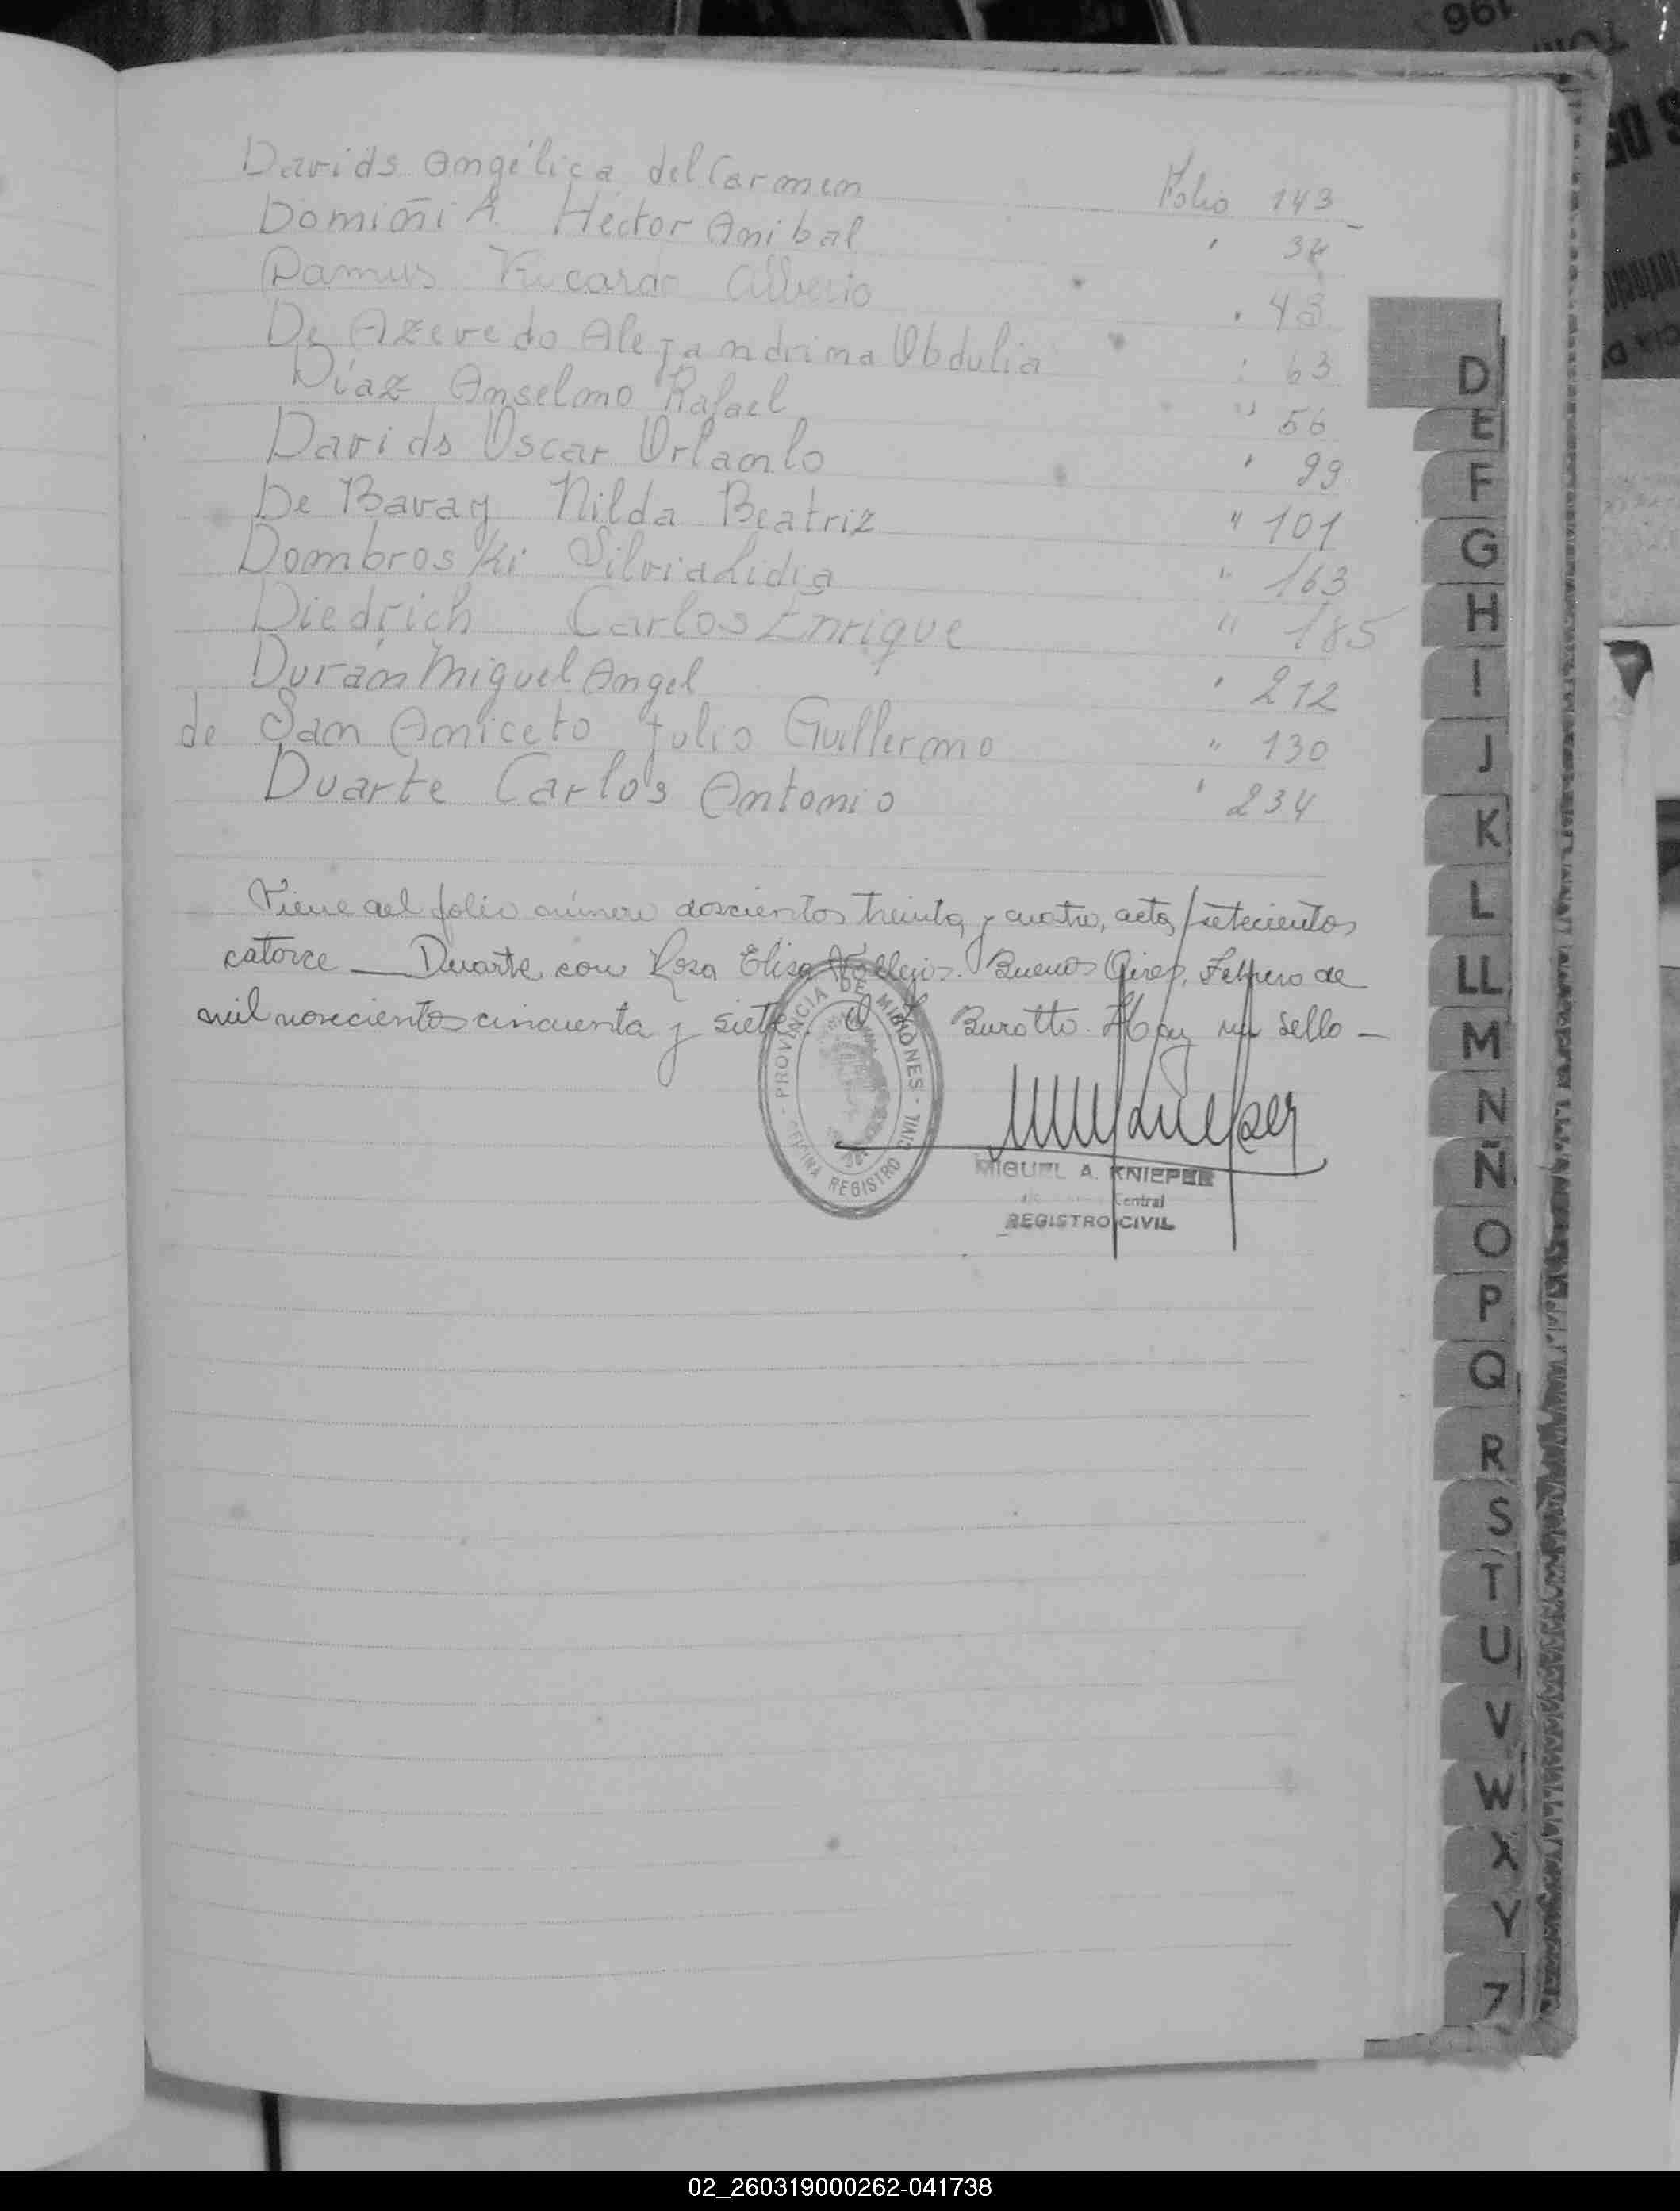 Davids Angélica del Carmen Folio 143
Domiñi A. Héctor Anibal " 34
Damus Ricardo Alberto " 43
De Azevedo Alejandrina Obdulia " 63
Díaz Anselmo Rafael " 56
Davids Oscar Orlando " 99
De Bavay Nilda Beatriz " 101
Dombroski Silvia Lidia " 163
Diedrich Carlos Enrique " 185
Durán Miguel Angel " 212
de San Aniceto Julio Guillermo " 130
Duarte Carlos Antonio " 234
Viene del folio número doscientos treinta y cuatro, acta setecientos
catorce — Duarte con Rosa Elisa Vallejos. Buenos Aires, Febrero de
mil novecientos cincuenta y siete. Burotto. Hay un sello —
PROVINCIA DE MISIONES - OFICINA REGISTRO CIVIL -
MIGUEL A. KNIEPER
Central
REGISTRO CIVIL
D
E
F
G
H
I
J
K
L
LL
M
N
Ñ
O
P
Q
R
S
T
U
V
W
X
Y
Z
02_260319000262-041738